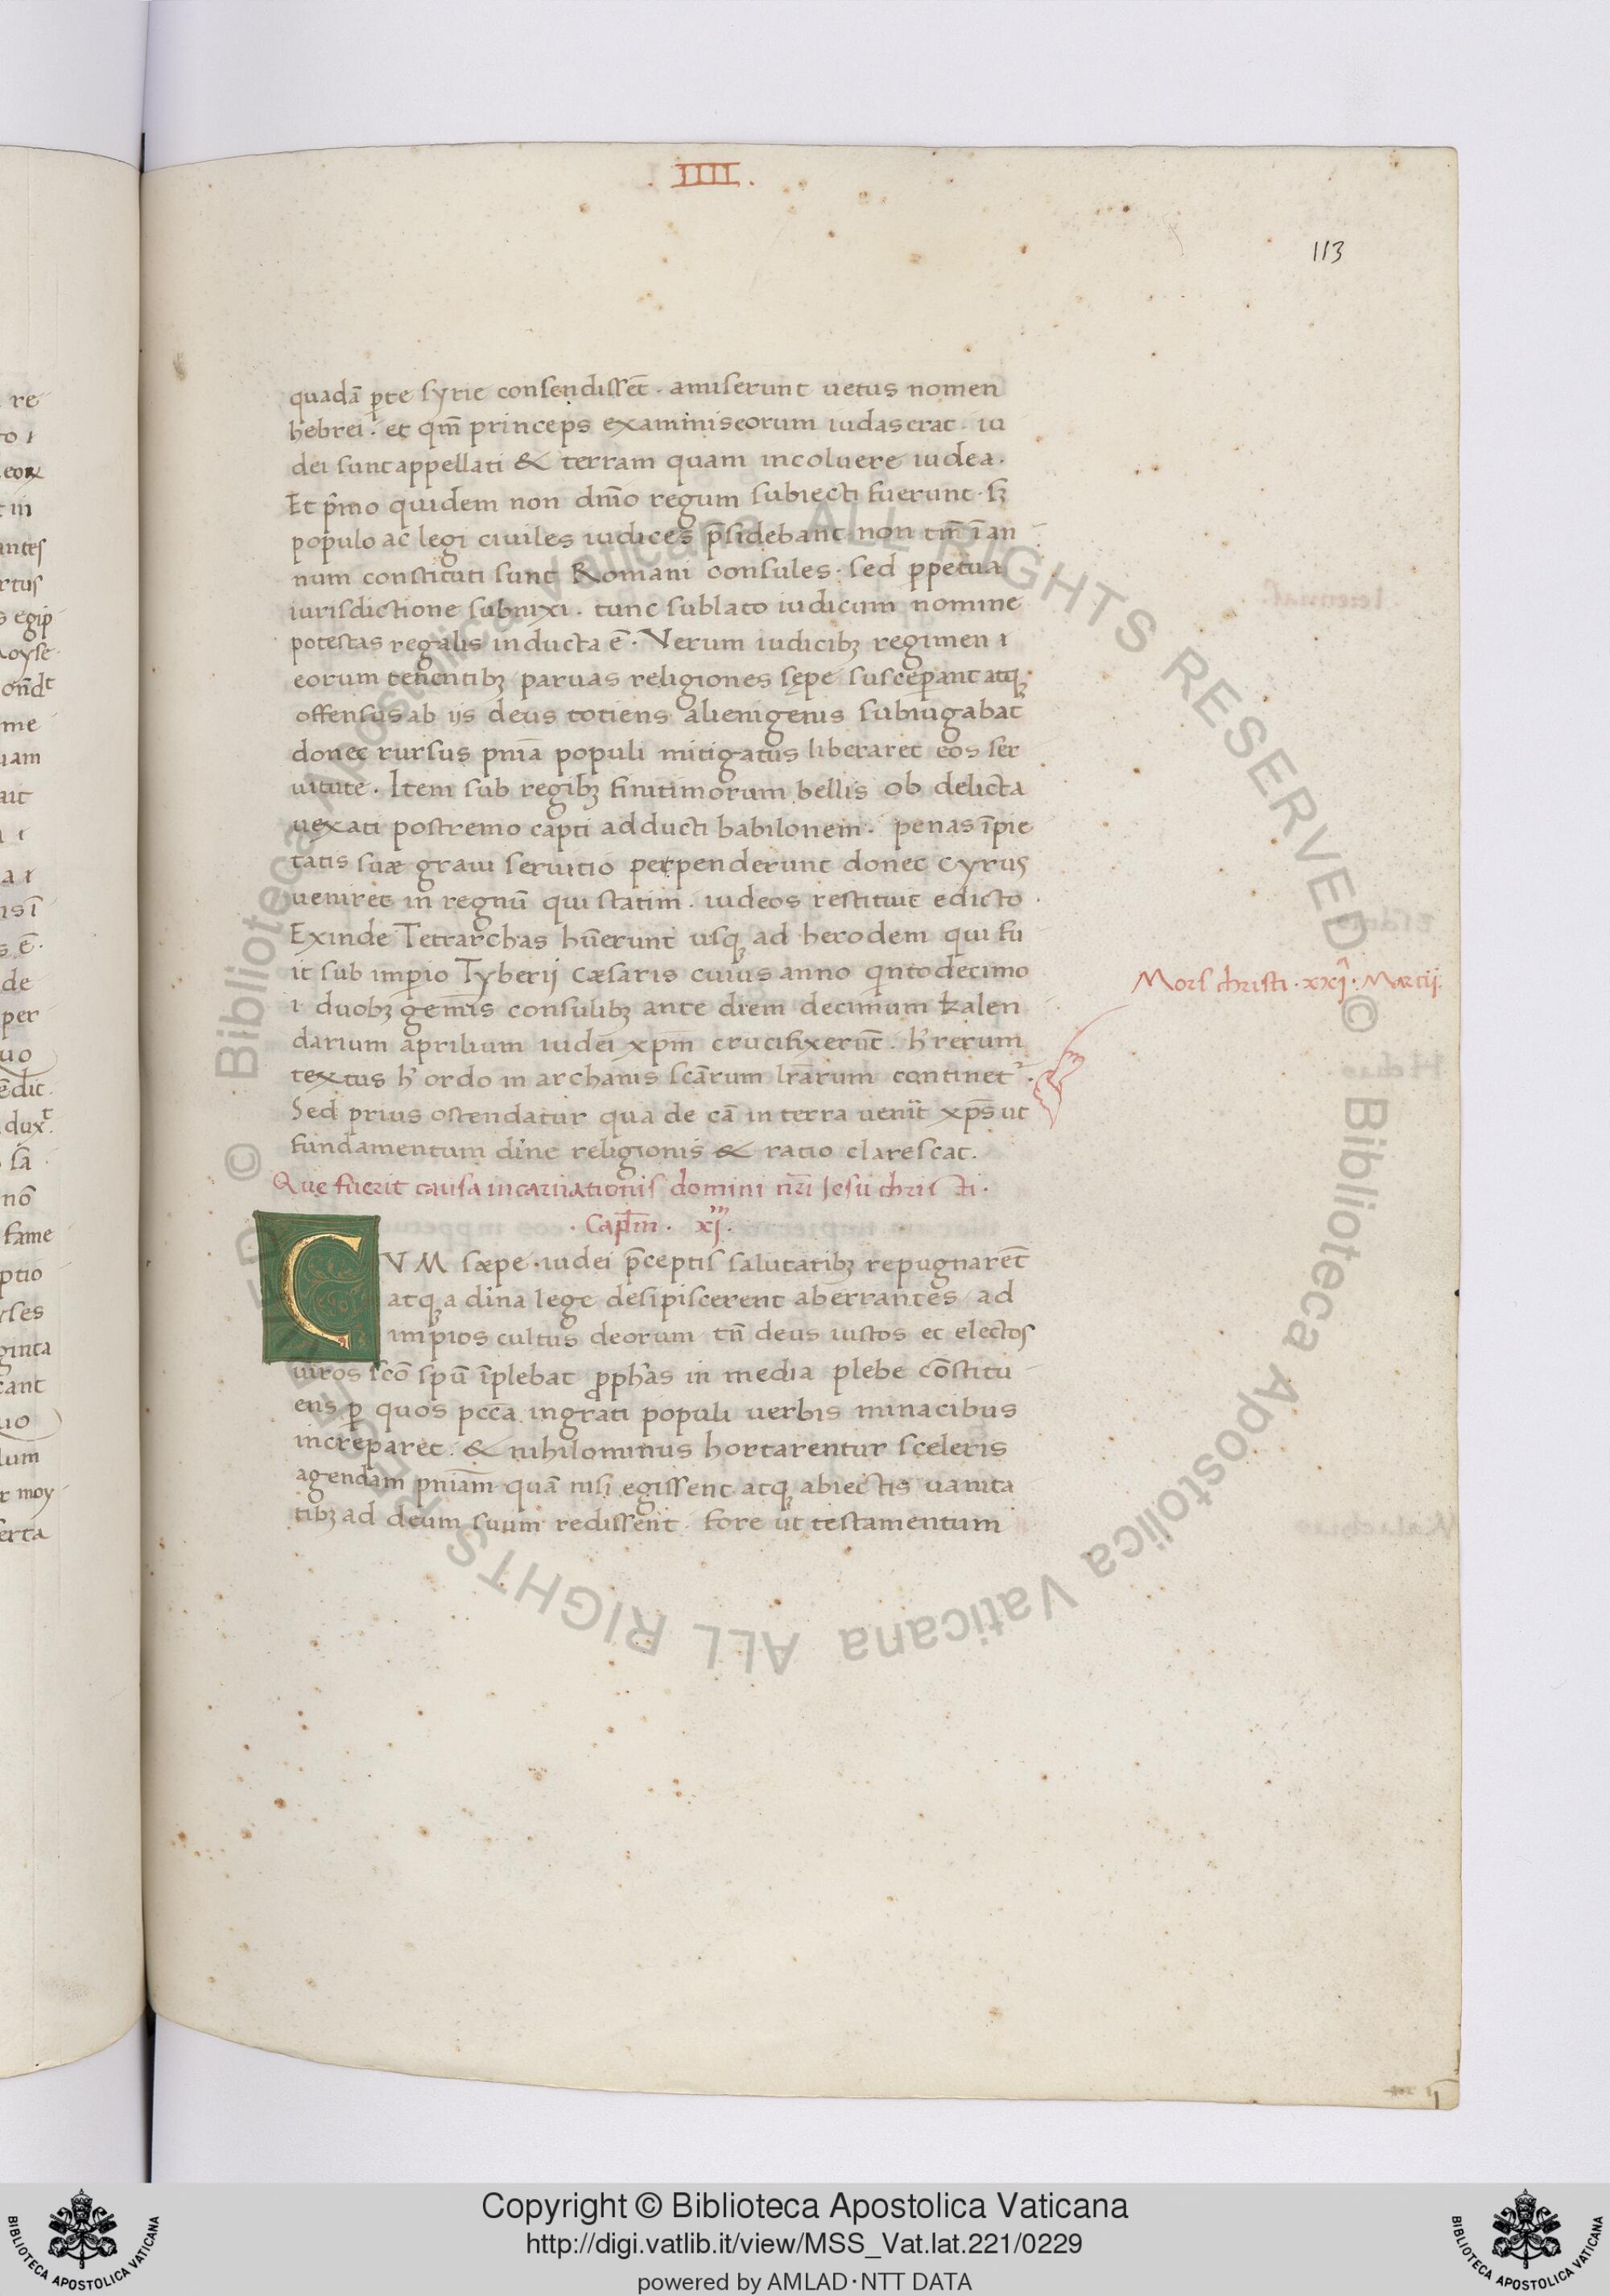 . IIII .
113
quadā p̱te syrie consendissēt . amiserunt uetus nomen
hebrei . et qm̄ princeps examiniseorum iudas erat . iu
dei sunt appellati & terram quam incoluere iudea .
Et p̄mo quidem non dm̄o regum subiecti fuerunt . sꝫ
populo ac legi ciuiles iudices p̄sidebant non tm̄ ī an
num constituti sunt Romani consules . sed ꝑpetua
iurisdictione subnixi . tunc sublato iudicum nomine
potestas regalis inducta ē . Verum iudicibꝫ regimen ı
eorum tenentibꝫ prauas religiones sępe susceꝑant atqꝫ
offensus ab ijs deus totiens alienigenis subiugabat
donec rursus pnīa populi mitigatus liberaret eos ser
uitute . Item sub regibꝫ finitimorum bellis ob delicta
uexati postremo capti adducti babilonem . penas īpie
tatis suæ graui seruitio perpenderunt donec cyrus
ueniret in regnū qui statim . iudeos restituit edicto .
Exinde Tetrarchas hūerunt usqꝫ ad herodem qui fu
it sub imꝑio Tyberij Cæsaris cuius anno qͥnto decimo
ı duobꝫ gemīs consulibꝫ ante diem decimum kalen
darium aprilium iudei xp̄m crucifixerūt . h' rerum
textus h' ordo in archanis scārum lr̄arum continet² .
Sed prius ostendatur qua de cā in terra uenit xp̄s ut
fundamentum diͥne religionis & ratio clarescat .
Mors christi . xxiȷ . Martij .
Que fuerit causa incarnationis domini nr̄i Jesu christi .
. Capl̄m . xj .
CVM sæpe . iudei p̄ceptis salutaribꝫ repugnarēt
atqꝫ a diͥna lege desipiscerent aberrantes ad
impios cultus deorum tn̄ deus iustos et electos
uiros scō spū īplebat ꝓph'as in media plebe cōstitu
ens ꝑ quos pcc̄a ingrati populi uerbis minacibus
increparet . & nihilominus hortarentur sceleris
agendam pniam̄ quā nisi egissent atqꝫ abiectis uanita
tibꝫ ad deum suum redissent . fore ut testamentum
Copyright © Biblioteca Apostolica Vaticana
http://digi.vatlib.it/view/MSS_Vat.lat.221/0229
powered by AMLAD · NTT DATA
BIBLIOTECA APOSTOLICA VATICANA
BIBLIOTECA APOSTOLICA VATICANA
© Biblioteca Apostolica Vaticana ALL RIGHTS RESERVED © Biblioteca Apostolica Vaticana ALL RIGHTS RESERVED